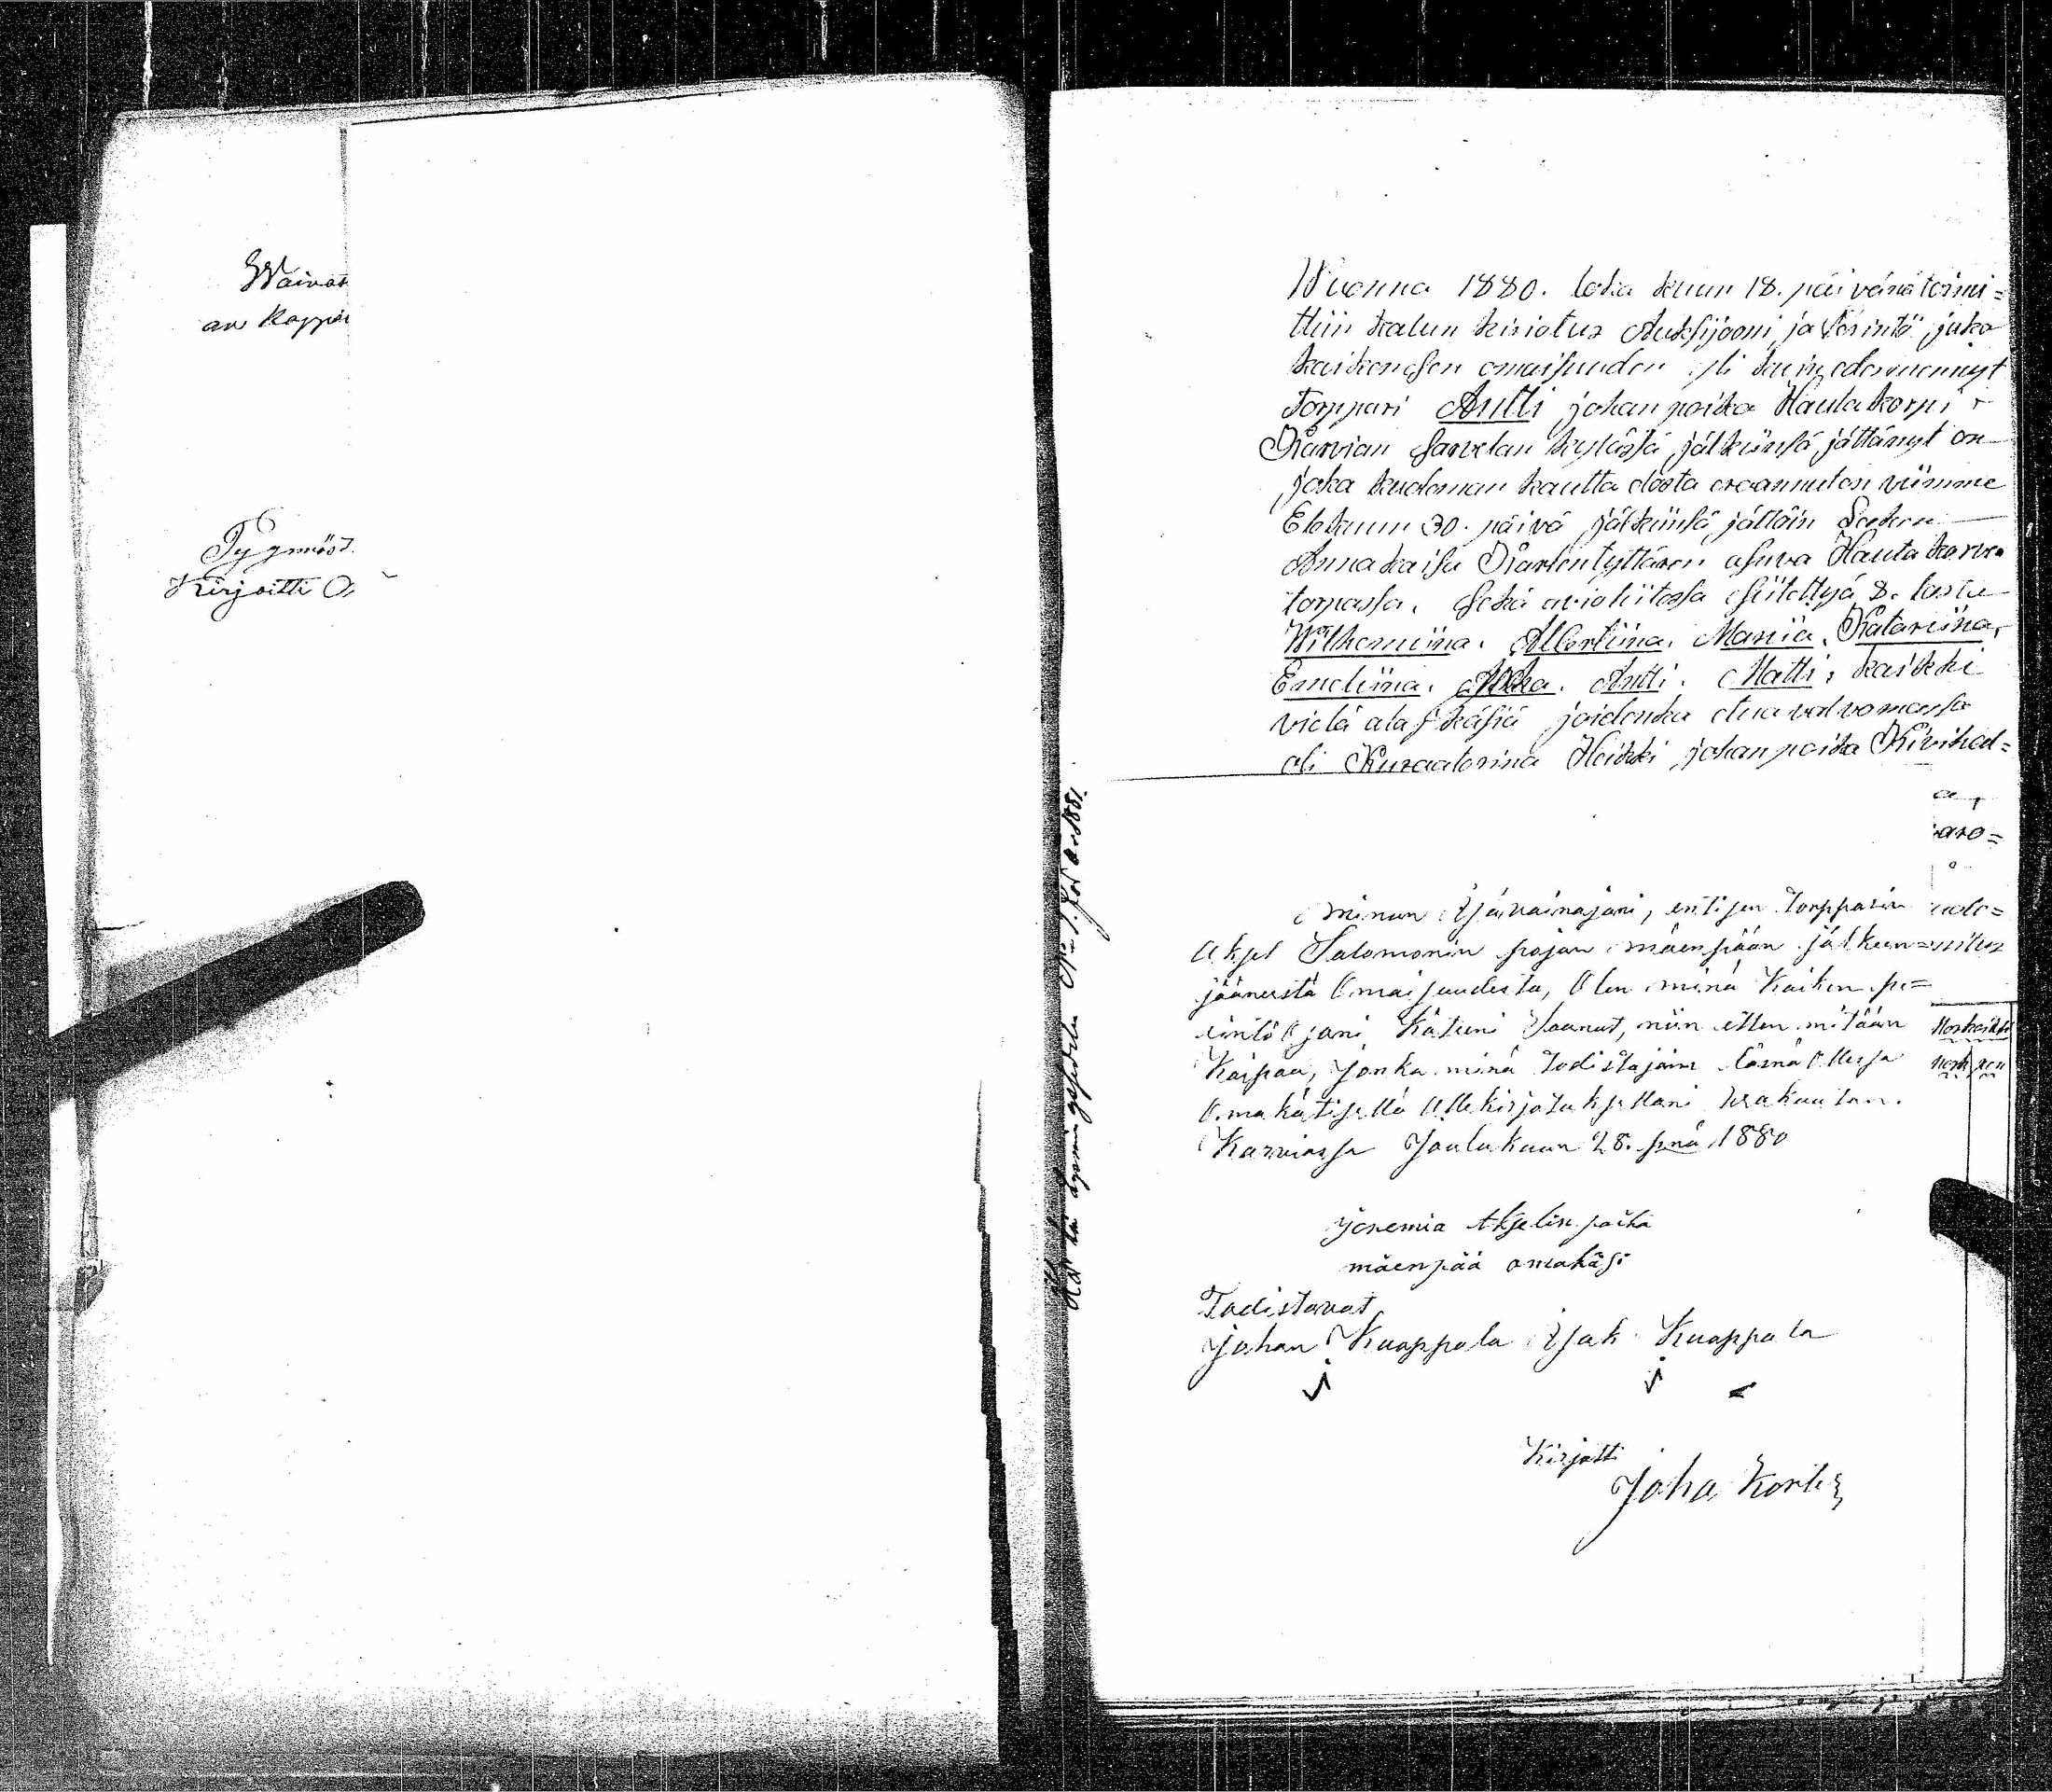 Waivas
an Kappa
Tyÿnnööt
Kirjoitti
Wuonna 1880. loka kuun 18. päivänä toimi=
ttiin kalun kirjotus Auksijooni, ja Perintö juko
kaikenasen omaisuuden yli kuin edesmennyt
Torppari Antti johan poika Hautakorpi
Karvian Sarvelan kylässä jälkiinsä jättänyt on
joka kuoleman kautta tästä eroannut on viimme
Elokuun 30. päivä jälkiinsä jättäin Lesken
Anna kaisa Kaarlentyttären asuva Hautakorven
torpassa. Sekä avioliitossa siitettyä 8. lasta
Wilhemiina. Albertiina. Mariia. Katariina,
Emeliina. Juha. Antti. Matti, kaikki
vielä alaikäsiä joidenka etua valvomassa
oli Kuraatorina Heikki johan poika Kivihal=
aro=
uolo=
Minun Isävainajani, entisen Torpparin
Aksel Salomonin pojan mäenpään jälkeen=
jääneestä Omaisuudesta, Olen minä Kaiken pe=
rintö Osani Käteeni Saanut, niin etten mitään
Kaipaa, Jonka minä todistajain läsnä Ollessa
Omakätisellä Allekirjotuksellani wakuutan.
Karviassa Joulukuun 28. pnä 1880
Jeremia Akselin poika
mäenpää omakäsi
Todistavat
Johan Kuappala Isak Kuappala
Kirjotti
Joha Kortes